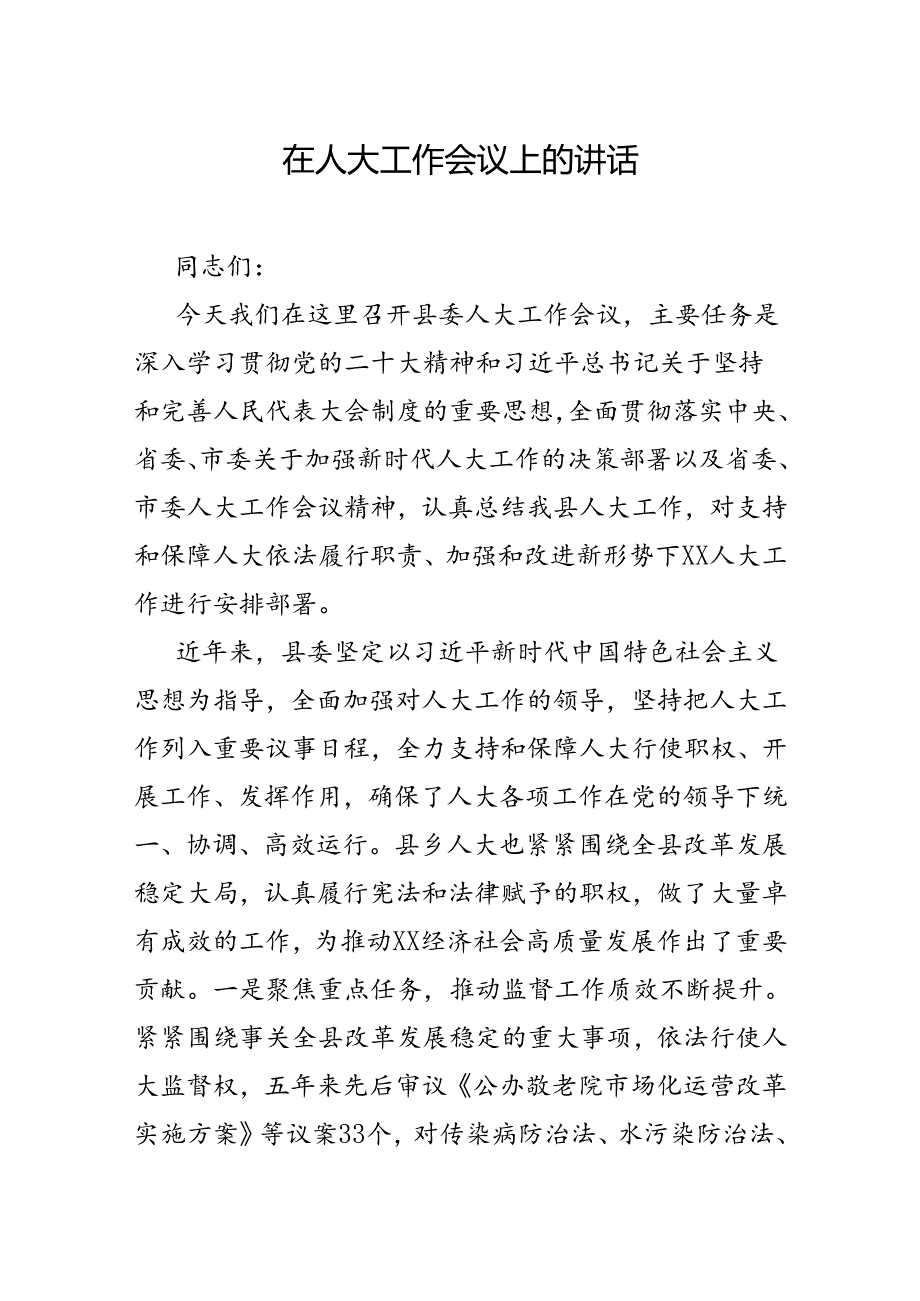 在人大工作会议上的讲话
同志们：
今天我们在这里召开县委人大工作会议，主要任务是
深入学习贯彻党的二十大精神和习近平总书记关于坚持
和完善人民代表大会制度的重要思想,全面贯彻落实中央、
省委、市委关于加强新时代人大工作的决策部署以及省委、
市委人大工作会议精神，认真总结我县人大工作，对支持
和保障人大依法履行职责、加强和改进新形势下XX人大工
作进行安排部署。
近年来，县委坚定以习近平新时代中国特色社会主义
思想为指导，全面加强对人大工作的领导，坚持把人大工
作列入重要议事日程，全力支持和保障人大行使职权、开
展工作、发挥作用，确保了人大各项工作在党的领导下统
一、协调、高效运行。县乡人大也紧紧围绕全县改革发展
稳定大局，认真履行宪法和法律赋予的职权，做了大量卓
有成效的工作，为推动XX经济社会高质量发展作出了重要
贡献。一是聚焦重点任务，推动监督工作质效不断提升。
紧紧围绕事关全县改革发展稳定的重大事项，依法行使人
大监督权，五年来先后审议《公办敬老院市场化运营改革
实施方案》等议案33个，对传染病防治法、水污染防治法、